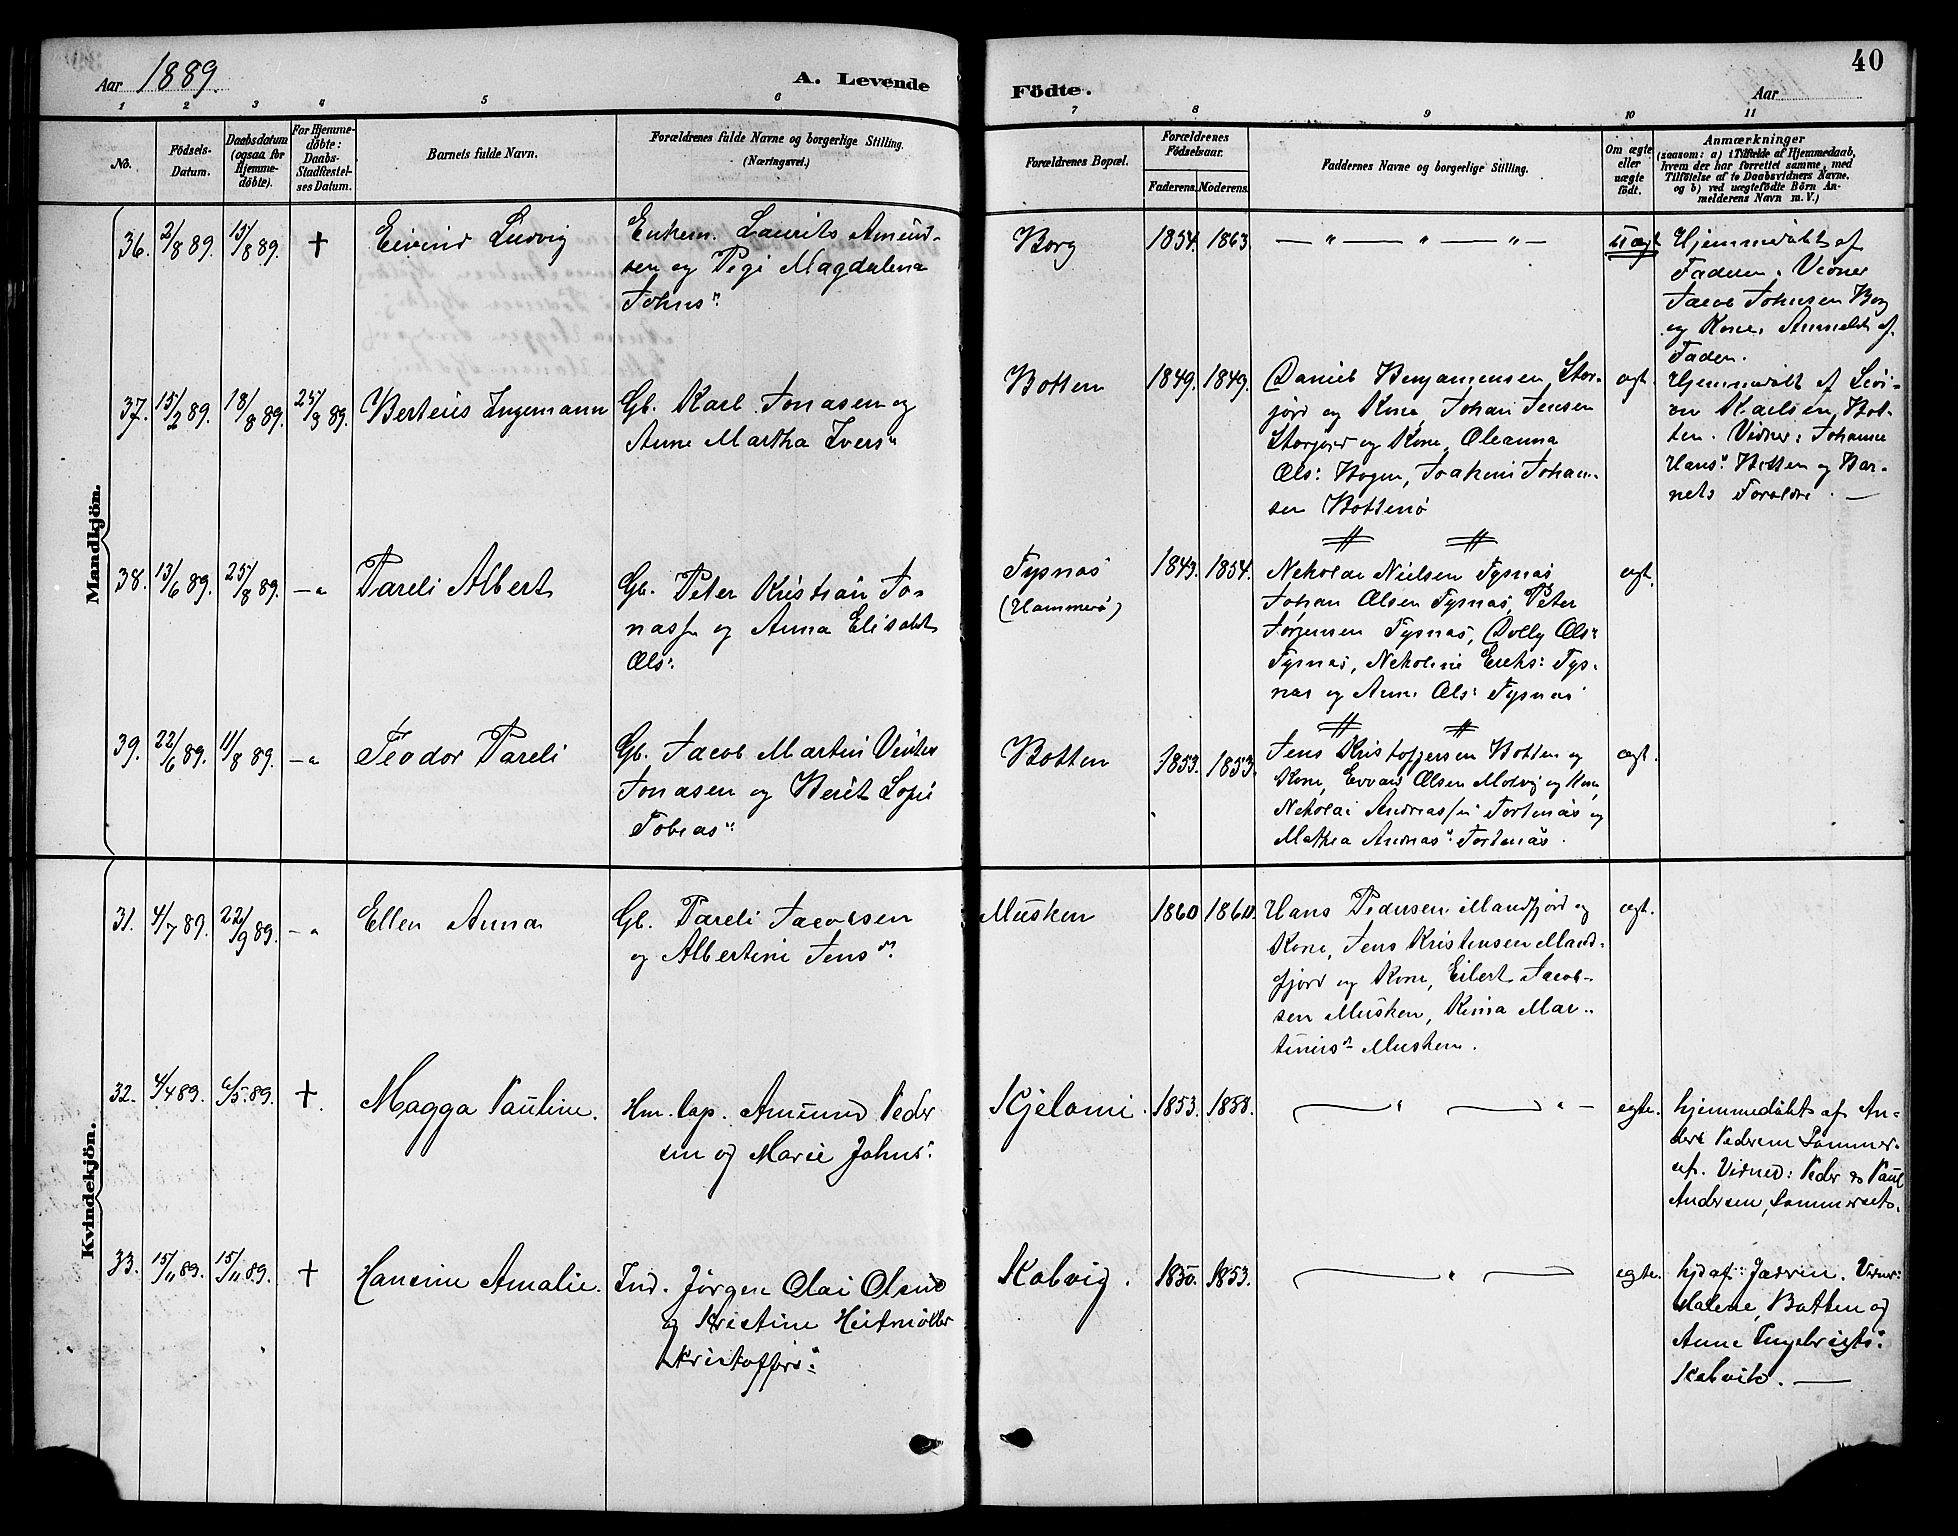 Aar 1889.
A. Levende
Födte.
Aar
40
1
2
3
4
5
6
7
8
9
10
11
No.
Födsels-
Datum.
Daabsdatum
(ogsaa for
Hjemme-
döbte).
For Hjemme-
döbte:
Daabs-
Stadfæstel-
ses Datum.
Barnets fulde Navn.
Forældrenes fulde Navne og borgerlige Stilling.
(Næringsvei.)
Forældrenes Bopæl.
Forældrenes
Födselsaar.
Faderens.
Moderens.
Faddernes Navne og borgerlige Stilling.
Om ægte
eller
uægte
födt.
Anmærkninger
(saasom: a) i Tilfælde af Hjemmedaab,
hvem der har forrettet samme, med
Tilföielse af to Daabsvidners Navne.
og b) ved uægtefödte Börn An-
melderens Navn m. V.)
Mandkjön.
36.
2/8 89.
15/8 89.
+
Eivind Ludvig
Enkem. Laurits Amund-
sen og Pegi Magdalena
Johns"
Borg
1854.
1863.
— " — " — " —
Uægt
Hjemmedöbt af
Faderen. Vidner
Jacob Johnsen Borg
og Kone. Anmeldt af
Faden.
37.
15/2 89.
18/8 89.
25/8 89.
Berteus Ingemann
Gb. Karl Jonasen og
Anne Martha Ivers"
Botten
1849.
1849.
Daniel Benjamensen Stor-
jord og Kone, Johan Jensen
Storjord og Kone, Oleanna
Ols: Hogen, Joakim Johan-
sen Bottenö
ægt.
Hjemmedöbt af
Karlsen, Bot-
ten. Vidner: Johanne
Hans" Botten og Bar-
nets Forældre. —
38.
13/6 89.
25/8 89.
— "
Pareli Albert
Gb. Peter Kristian Jo-
nassen og Anna Elisabet
Ols:
Tysnæs
(Hammerö)
1843.
1854.
Nekolai Nielsen Tysnæs
Johan Olsen Tysnæs, Peter
Jörgensen Tysnæs, Dolly Ols"
Tysnæs, Nekoline Ereks: Tys-
næs og Anne Ols: Tysnæs
ægt.
39.
22/6 89.
11/8 89.
— "
Teodor Pareli
Gb. Jacob Martin Venter
Jonasen og Berit Sofie
Tobias"
Botten
1853.
1853.
Jens Kristoffersen Botten og
Kone, Edvard Olsen Molvig og Kone,
Nekolai Andreassen Fortenæs og
Mathea Andreas" Fortenæs.
ægt.
Kvindekjön.
31.
4/7 89.
22/9 89.
— "
Ellen Anna
Gb. Pareli Jacobsen
og Albertine Jens"
Musken
1860
1860.
Hans Pedersen Mandfjord og
Kone, Jens Kristensen Mand-
fjord og Kone, Eilert Jacob-
sen Musken, Kima Mar-
tinus" Musken.
ægt.
32.
4/4 89.
6/5 89.
+.
Magga Pauline.
Hm. lap. Amund Peder
sen og Marie Johns:
Kjelomi.
1853.
1858.
— " — " —
egte.
hjemmedöbt af An-
ders Pedersen Sommer-
set. Vidner: Peder & Paul
Andersen, Sommerset.
33.
15/11 89.
15/11 89.
+
Hansine Amalie.
Ind. Jörgen Olai Olsen
og Kristine Heitmöller
Kristoffers"
Kalvig.
1850.
1853.
— " —
egte.
hjd af: Faderen. Vidner:
Malene, Botten og
Anne Ingebrigts"
Kalvik. —